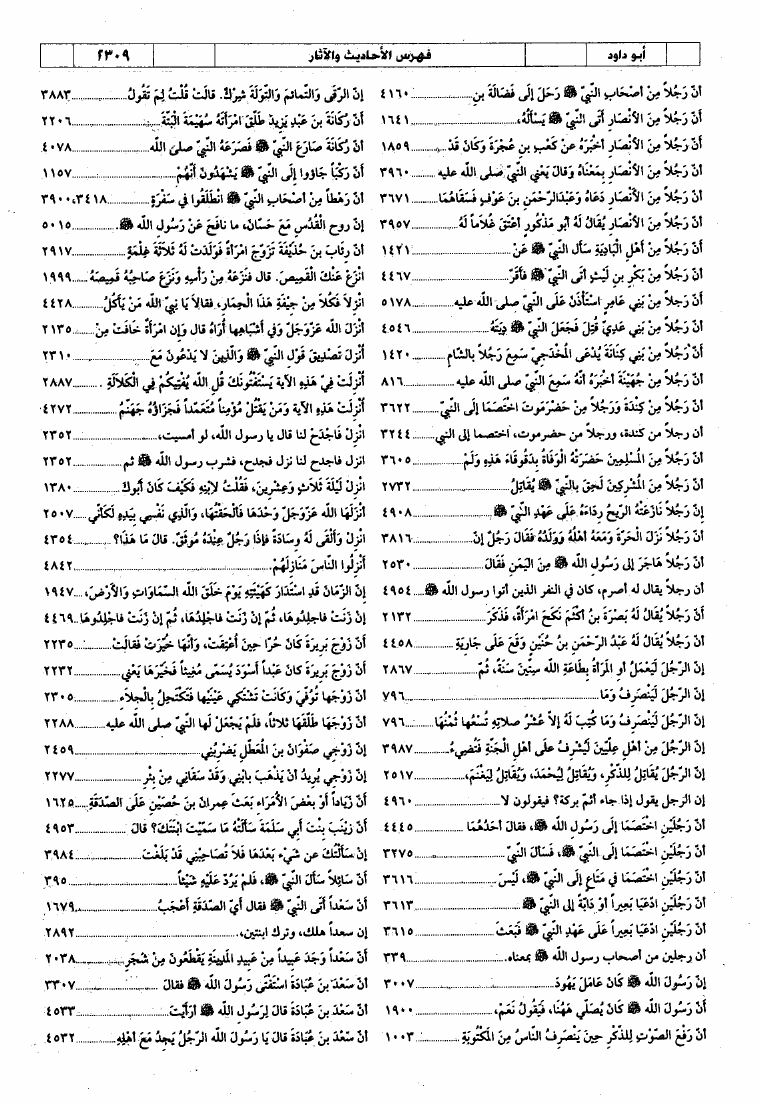 أبو داود فهرس الأحاديث والآثار ٢٣٠٩
أنّ رَجُلاً مِنْ أصْحَابِ النّبيّ ﷺ رَحَلَ إلَى فَضَالَةَ بنِ ٤١٦٠
أنّ رَجُلاً مِنَ الأنْصَارِ أتَى النّبيّ ﷺ يَسْألُهُ، ١٦٤١
أنّ رَجُلاً مِنَ الأنْصَارِ أخبَرَهُ عنْ كَعْبِ بنِ عُجْرَةَ وَكَانَ قَدْ ١٨٥٩
أنّ رَجُلاً مِنَ الأنْصَارِ بِمَعْنَاهُ وَقالَ يَعْني النّبيّ صلى الله عليه ٣٩٦٠
أنّ رَجُلاً مِنَ الأنْصَارِ دَعَاهُ وَعَبْدَالرّحْمَنِ بنَ عَوْفٍ فَسَقَاهُمَا ٣٦٧١
أنّ رَجُلاً مِنَ الأنْصَارِ يُقَالُ لَهُ أبُو مَذْكُورٍ أعْتَقَ غُلَاماً لَهُ ٣٩٥٧
أنّ رَجُلاً مِنْ أهْلِ الْبَادِيَةِ سَألَ النّبيّ ﷺ عَنْ ١٤٢١
أنّ رَجُلاً مِنْ بَكْرِ بنِ لَيْثٍ أتَى النّبيّ ﷺ فأقَرّ ٤٤٦٧
أنّ رَجلاً مِنْ بَنِي عَامِرٍ اسْتَأْذَنَ عَلَى النّبيّ صلى الله عليه ٥١٧٨
أنّ رَجُلاً مِنْ بَنِي عَدِيّ قُتِلَ فَجَعَلَ النّبيّ ﷺ دِيَتَهُ ٤٥٤٦
أنّ رَجُلاً مِنْ بَنِي كِنَانَةَ يُدْعَى المُخْدَجِيّ سَمِعَ رَجُلاً بالشّامِ ١٤٢٠
أنّ رَجُلاً مِنْ جُهَيْنَةَ أخْبَرَهُ أنّهُ سَمِعَ النّبيّ صلى الله عليه ٨١٦
أنّ رَجُلاً مِنْ كِنْدَةَ وَرَجُلاً مِنْ حَضْرَمَوتَ اخْتَصَمَا إلَى النّبيّ ٣٦٢٢
أن رجلاً من كندة، ورجلاً من حضرموت، اختصما إلى النبي ٣٢٤٤
أنّ رَجُلاً مِنَ المُسْلِمِينَ حَضَرَتْهُ الْوَفَاةُ بِدَقُوقَاءَ هَذِهِ وَلَمْ ٣٦٠٥
أنّ رَجُلاً مِنَ المُشْرِكِينَ لَحِقَ بالنّبيّ ﷺ يُقَاتِلُ ٢٧٣٢
إنّ رَجُلاً نَازَعَتْهُ الرّيحُ رِدَاءَهُ عَلَى عَهْدِ النّبيّ ﷺ ٤٩٠٨
أنّ رَجُلاً نَزَلَ الْحَرّةَ وَمَعَهُ أهْلُهُ وَوَلَدُهُ فَقَالَ رَجُلٌ إنّ ٣٨١٦
أنّ رَجُلاً هَاجَرَ إلَى رَسُولِ الله ﷺ مِنَ الْيَمَنِ فَقَالَ ٢٥٣٠
أن رجلاً يقال له أصرم، كان في النفر الذين أتوا رسول الله ﷺ ٤٩٥٤
أنّ رَجُلاً يُقَالُ لَهُ بَصْرَةُ بنُ أكْثَمَ نَكَحَ امْرَأةً، فَذَكَرَ ٢١٣٢
أنّ رَجُلاً يُقَالُ لَهُ عَبْدُ الرّحْمَنِ بنُ حُنَيْنٍ وَقَعَ عَلَى جَارِيَةِ ٤٤٥٨
إنّ الرّجُلَ لَيَعْمَلُ أوِ المَرْأةَ بِطَاعَةِ الله سِتّينَ سَنَةً، ثُمّ ٢٨٦٧
إنّ الرّجُلَ لَيَنْصَرِفُ وَمَا ٧٩٦
إنّ الرّجُلَ لَيَنْصَرِفُ وَمَا كُتِبَ لَهُ إلاّ عُشْرُ صلاتِهِ تُسْعُها ثُمْنُهَا ٧٩٦
إنّ الرّجُلَ مِنْ أهْلِ عِلّيّينَ لَيُشْرِفُ عَلَى أهْلِ الْجَنّةِ فَتُضِيءُ ٣٩٨٧
إنّ الرّجُلَ يُقَاتِلُ لِلذّكْرِ، وَيُقَاتِلُ لِيُحْمَدَ، وَيُقَاتِلُ لِيَغْنَمَ، ٢٥١٧
إن الرجل يقول إذا جاء أثمّ بركة؟ فيقولون لا ٤٩٦٠
أنّ رَجُلَيْنِ اخْتَصَمَا إلَى رَسُولِ الله ﷺ، فقالَ أحَدُهُمَا ٤٤٤٥
أنّ رَجُلَيْنِ اخْتَصَمَا إلَى النّبيّ ﷺ، فَسَألَ النّبيّ ٣٢٧٥
أنّ رَجُلَيْنِ اخْتَصَمَا في مَتَاعٍ إلَى النّبيّ ﷺ، لَيْسَ ٣٦١٦
أنّ رَجُلَيْنِ ادّعَيَا بَعِيراً أوْ دَابّةً إلى النّبيّ ﷺ ٣٦١٣
أنّ رَجُلَيْنِ ادّعَيَا بَعِيراً عَلَى عَهْدِ النّبيّ ﷺ فَبَعَثَ ٣٦١٥
أن رجلين من أصحاب رسول الله ﷺ بمعناه. ٣٣٩
إنّ رَسُولَ الله ﷺ كَانَ عَامَلَ يَهُودَ ٣٠٠٧
أنّ رَسُولَ الله ﷺ كَانَ يُصَلّي هَهُنَا، فَيَقُولُ نَعَمْ، ١٩٠٠
أنّ رَفْعَ الصّوْتِ لِلذّكْرِ حِينَ يَنْصَرِفُ النّاسُ مِنَ المَكْتُوبَةِ ١٠٠٣
إنّ الرّقَى وَالتّمائمَ وَالتّوَلَةَ شِرْكٌ. قالَتْ قُلْتُ لِمَ تَقُولُ ٣٨٨٣
أنّ رُكَانَةَ بنَ عَبْدِ يَزِيدَ طَلّقَ امْرَأتَهُ سُهَيْمَةَ الْبَتّةَ ٢٢٠٦
أنّ رُكَانَةَ صَارَعَ النّبيّ ﷺ فَصَرَعَهُ النّبيّ صلى الله ٤٠٧٨
أنّ رَكْباً جَاوُوا إلَى النّبيّ ﷺ يَشْهَدُونَ أنّهُمْ ١١٥٧
أنّ رَهْطاً مِنْ أصْحَابِ النّبيّ ﷺ انْطَلَقُوا في سَفْرَةٍ ٣٤١٨، ٣٩٠٠
إنّ روح الْقُدُسِ مَعَ حَسّانَ، ما نافَحَ عَنْ رَسُولِ الله ﷺ. ٥٠١٥
أنّ رِئَابَ بنَ حُذَيْفَةَ تَزَوّجَ امْرَأةً فَوَلَدَتْ لَهُ ثَلَاثَةَ غِلْمَةٍ ٢٩١٧
انْزَعْ عَنْكَ الْقَمِيصَ. قال فَنَزَعَهُ مِنْ رَأسِهِ وَنَزَعَ صَاحِبُهُ قَمِيصَهُ ١٩٩٩
انْزِلَا فَكُلَا مِنْ جِيفَةِ هَذَا الْحِمَارِ، فقالاَ يَا نَبِيّ الله مَنْ يَأْكُلُ ٤٤٢٨
أنْزَلَ الله عَزّوَجَلّ وَفي أشْبَاهِها أُرَاهُ قال وَإن امْرَأةٌ خَافَتْ مِنْ ٢١٣٥
أنْزلَ تَصْدِيقَ قَوْلِ النّبيّ ﷺ وَالّذِينَ لا يَدْعُونَ مَعَ ٢٣١٠
أُنْزِلَتْ فِيّ هَذِهِ الآية يَسْتَفْتُونَكَ قُلِ الله يُفْتِيكُمْ فِي الْكَلَالَةِ . ٢٨٨٧
أُنْزِلَتْ هَذِهِ الآية وَمَنْ يَقْتُلْ مُؤْمِناً مُتَعَمّداً فَجَزَاؤُهُ جَهَنّمُ ٤٢٧٢
انْزِلْ فَاجْدَحْ لنا قال يا رسول الله، لو أمسيت، ٢٣٥٢
انزل فاجدح لنا نزل فجدح، فشرب رسول الله ﷺ ثم ٢٣٥٢
انْزِلْ لَيْلَةَ ثَلاَثٍ وَعِشْرِينَ، فَقُلْتُ لابْنِهِ فَكَيْفَ كَانَ أبُوكَ ١٣٨٠
أنْزَلَهَا الله عَزّوَجَلّ وَحْدَهَا فَألْحَقْتُهَا، وَالّذِي نَفْسِي بِيَدِهِ لَكَأنّي ٢٥٠٧
انْزِلْ وَألْقَى لَهُ وِسَادَةً فإذَا رَجُلٌ عِنْدَهُ مُوثَقٌ. قالَ مَا هَذَا؟ ٤٣٥٤
أنْزِلُوا النّاسَ مَنَازِلَهُمْ. ٤٨٤٢
إنّ الزّمَانَ قَدِ اسْتَدَارَ كَهَيْئَتِهِ يَوْمَ خَلَقَ الله السّمَاوَاتِ وَالأرْضَ، ١٩٤٧
إنْ زَنَتْ فاجلِدُوهَا، ثُمّ إنْ زَنَتْ فاجْلِدُهَا، ثُمّ إنْ زَنَتْ فاجْلِدُوهَا ٤٤٦٩
أنّ زَوْجَ بَرِيرَةَ كَانَ حُرّا حينَ أُعْتِقَتْ، وَأنّهَا خُيّرَتْ فَقالَتْ ٢٢٣٥
أنّ زَوْجَ بَرِيرَةَ كَانَ عَبْداً أسْوَدَ يُسَمّى مُغِيثاً فَخَيّرَهَا يَعْني ٢٢٣٢
أنّ زَوْجَها تُوُفّيَ وَكَانَتْ تَشْتَكِي عَيْنَيْهَا فَتَكْتَحِلُ بِالْجِلاَءِ ٢٣٠٥
أنّ زَوْجَهَا طَلّقَهَا ثَلاثاً، فَلَمْ يَجْعَلْ لَهَا النّبيّ صلى الله عليه ٢٢٨٨
إنّ زَوْجِي صَفْوَانَ بنَ المُعَطّلِ يَضْرِبُنِي ٢٤٥٩
إنّ زَوْجِي يُرِيدُ أنْ يَذْهَبَ بابْنِي وَقَدْ سَقَانِي مِنْ بِئْرِ ٢٢٧٧
أنّ زِيَاداً أوْ بعْضَ الأُمَرَاءِ بَعَثَ عِمرانَ بنَ حُصَيْنٍ عَلَى الصّدَقَةِ ١٦٢٥
أنّ زَيْنَبَ بِنْتَ أبي سَلَمَةَ سَألَتْهُ مَا سَمّيْتَ ابْنَتَكَ؟ قالَ ٤٩٥٣
إنْ سَألْتُكَ عن شَيْءٍ بَعْدَهَا فَلَا تُصَاحِبْنِي قَدْ بَلَغْتَ ٣٩٨٤
أنّ سَائِلاً سَألَ النّبيّ ﷺ، فَلَمْ يَرُدّ عَلَيْهِ شَيْئاً ٣٩٥
أنّ سَعْداً أتَى النّبيّ ﷺ فقال أيّ الصّدَقَةِ أعْجَبُ ١٦٧٩
إن سعداً هلك، وترك ابنتين، ٢٨٩٢
أنّ سَعْداً وَجَدَ عَبِيداً مِنْ عَبِيدِ المَدِينَةِ يَقْطَعُونَ مِنْ شَجَرِ ٢٠٣٨
أنّ سَعْدَ بنَ عُبَادَةَ اسْتَفْتَى رَسُولَ الله ﷺ فقالَ ٣٣٠٧
أنّ سَعْدَ بنَ عُبَادَةَ قالَ لِرَسُولِ الله ﷺ أرَأيْتَ ٤٥٣٣
أنّ سَعْدَ بنَ عُبَادَةَ قالَ يَا رَسُولَ الله الرّجُلُ يَجِدُ مَعَ أهْلِهِ ٤٥٣٢